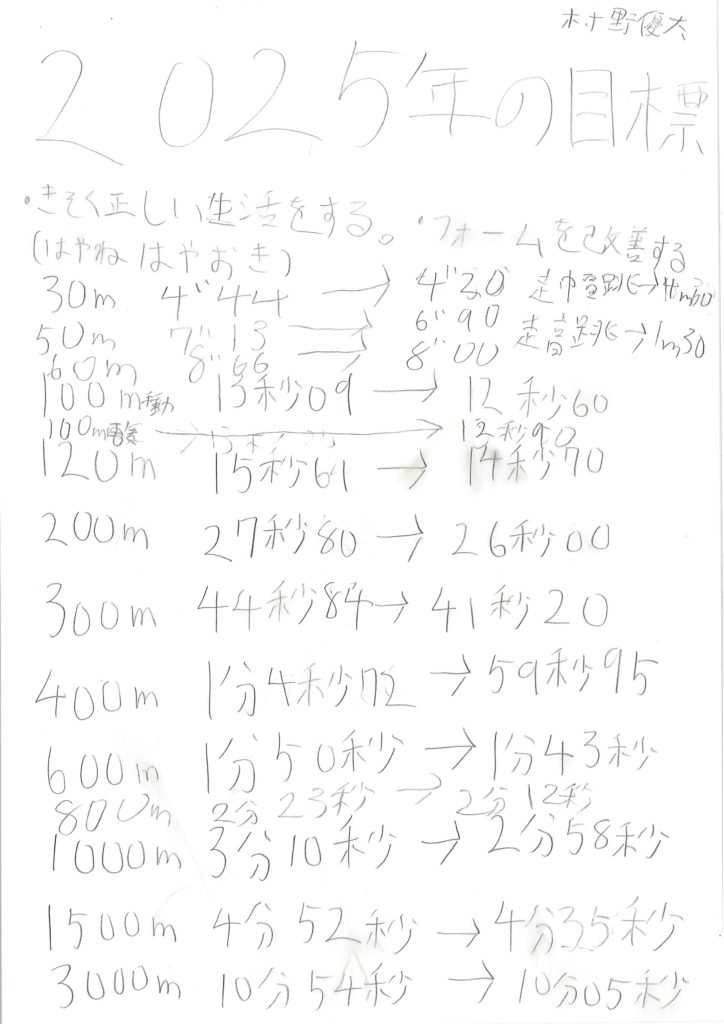 村野優太
2025年の目標
・きそく正しい生活をする。
(はやねはやおき)
・フォームを改善する
30m 4"44 → 4"30 走巾畐跳び→4m30
50m 7"13 → 6"90 走高跳び→1m30
60m 8"66 → 8"00
100m手動 13秒09 → 12秒60
100m電気 → 12秒90
120m 15秒61 → 14秒70
200m 27秒80 → 26秒00
300m 44秒84 → 41秒20
400m 1分4秒72 → 59秒95
600m 1分50秒 → 1分43秒
800m 2分23秒 → 2分12秒
1000m 3分10秒 → 2分58秒
1500m 4分52秒 → 4分35秒
3000m 10分54秒 → 10分05秒